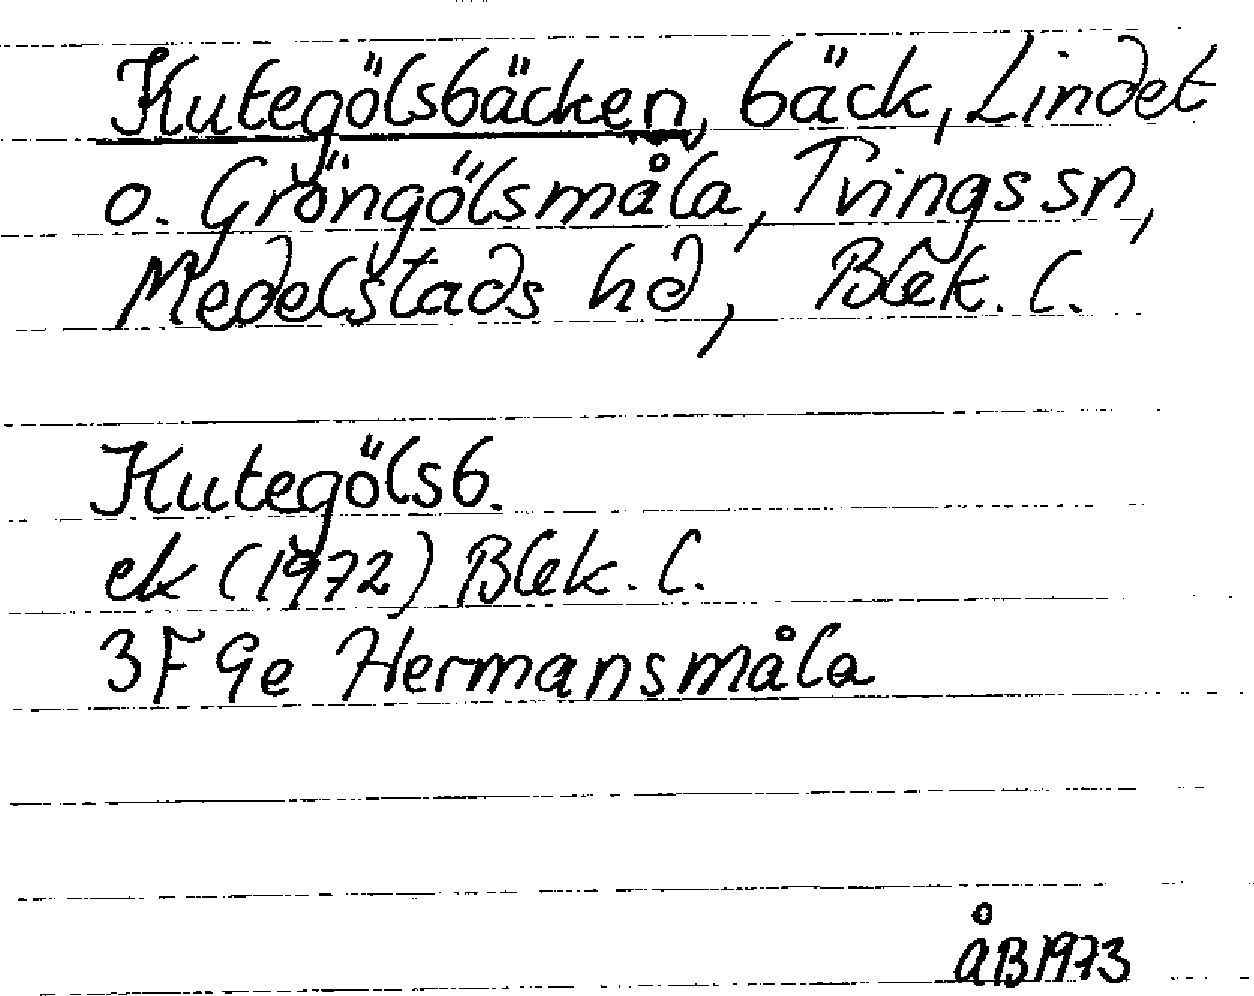 Kutegölsbäcken, bäck, Lindet
o. Gröngölsmåla, Tvings sn,
Medelstads hd, Blek. l.
Kutegölsb.
ek (1972) Blek. l.
3F 9e Hermansmåla
ÅB 1973